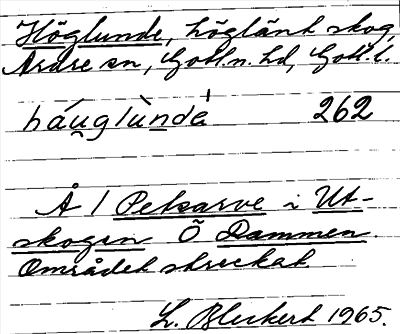 Höglunde, höglänt skog,
Ardre sn, Gotl. n. hd, Gotl. l.
háu̯glùndá 262
Å 1 Petsarve i Ut-
skogen Ö Dammen.
Området streckat.
L. Bleckert 1965.